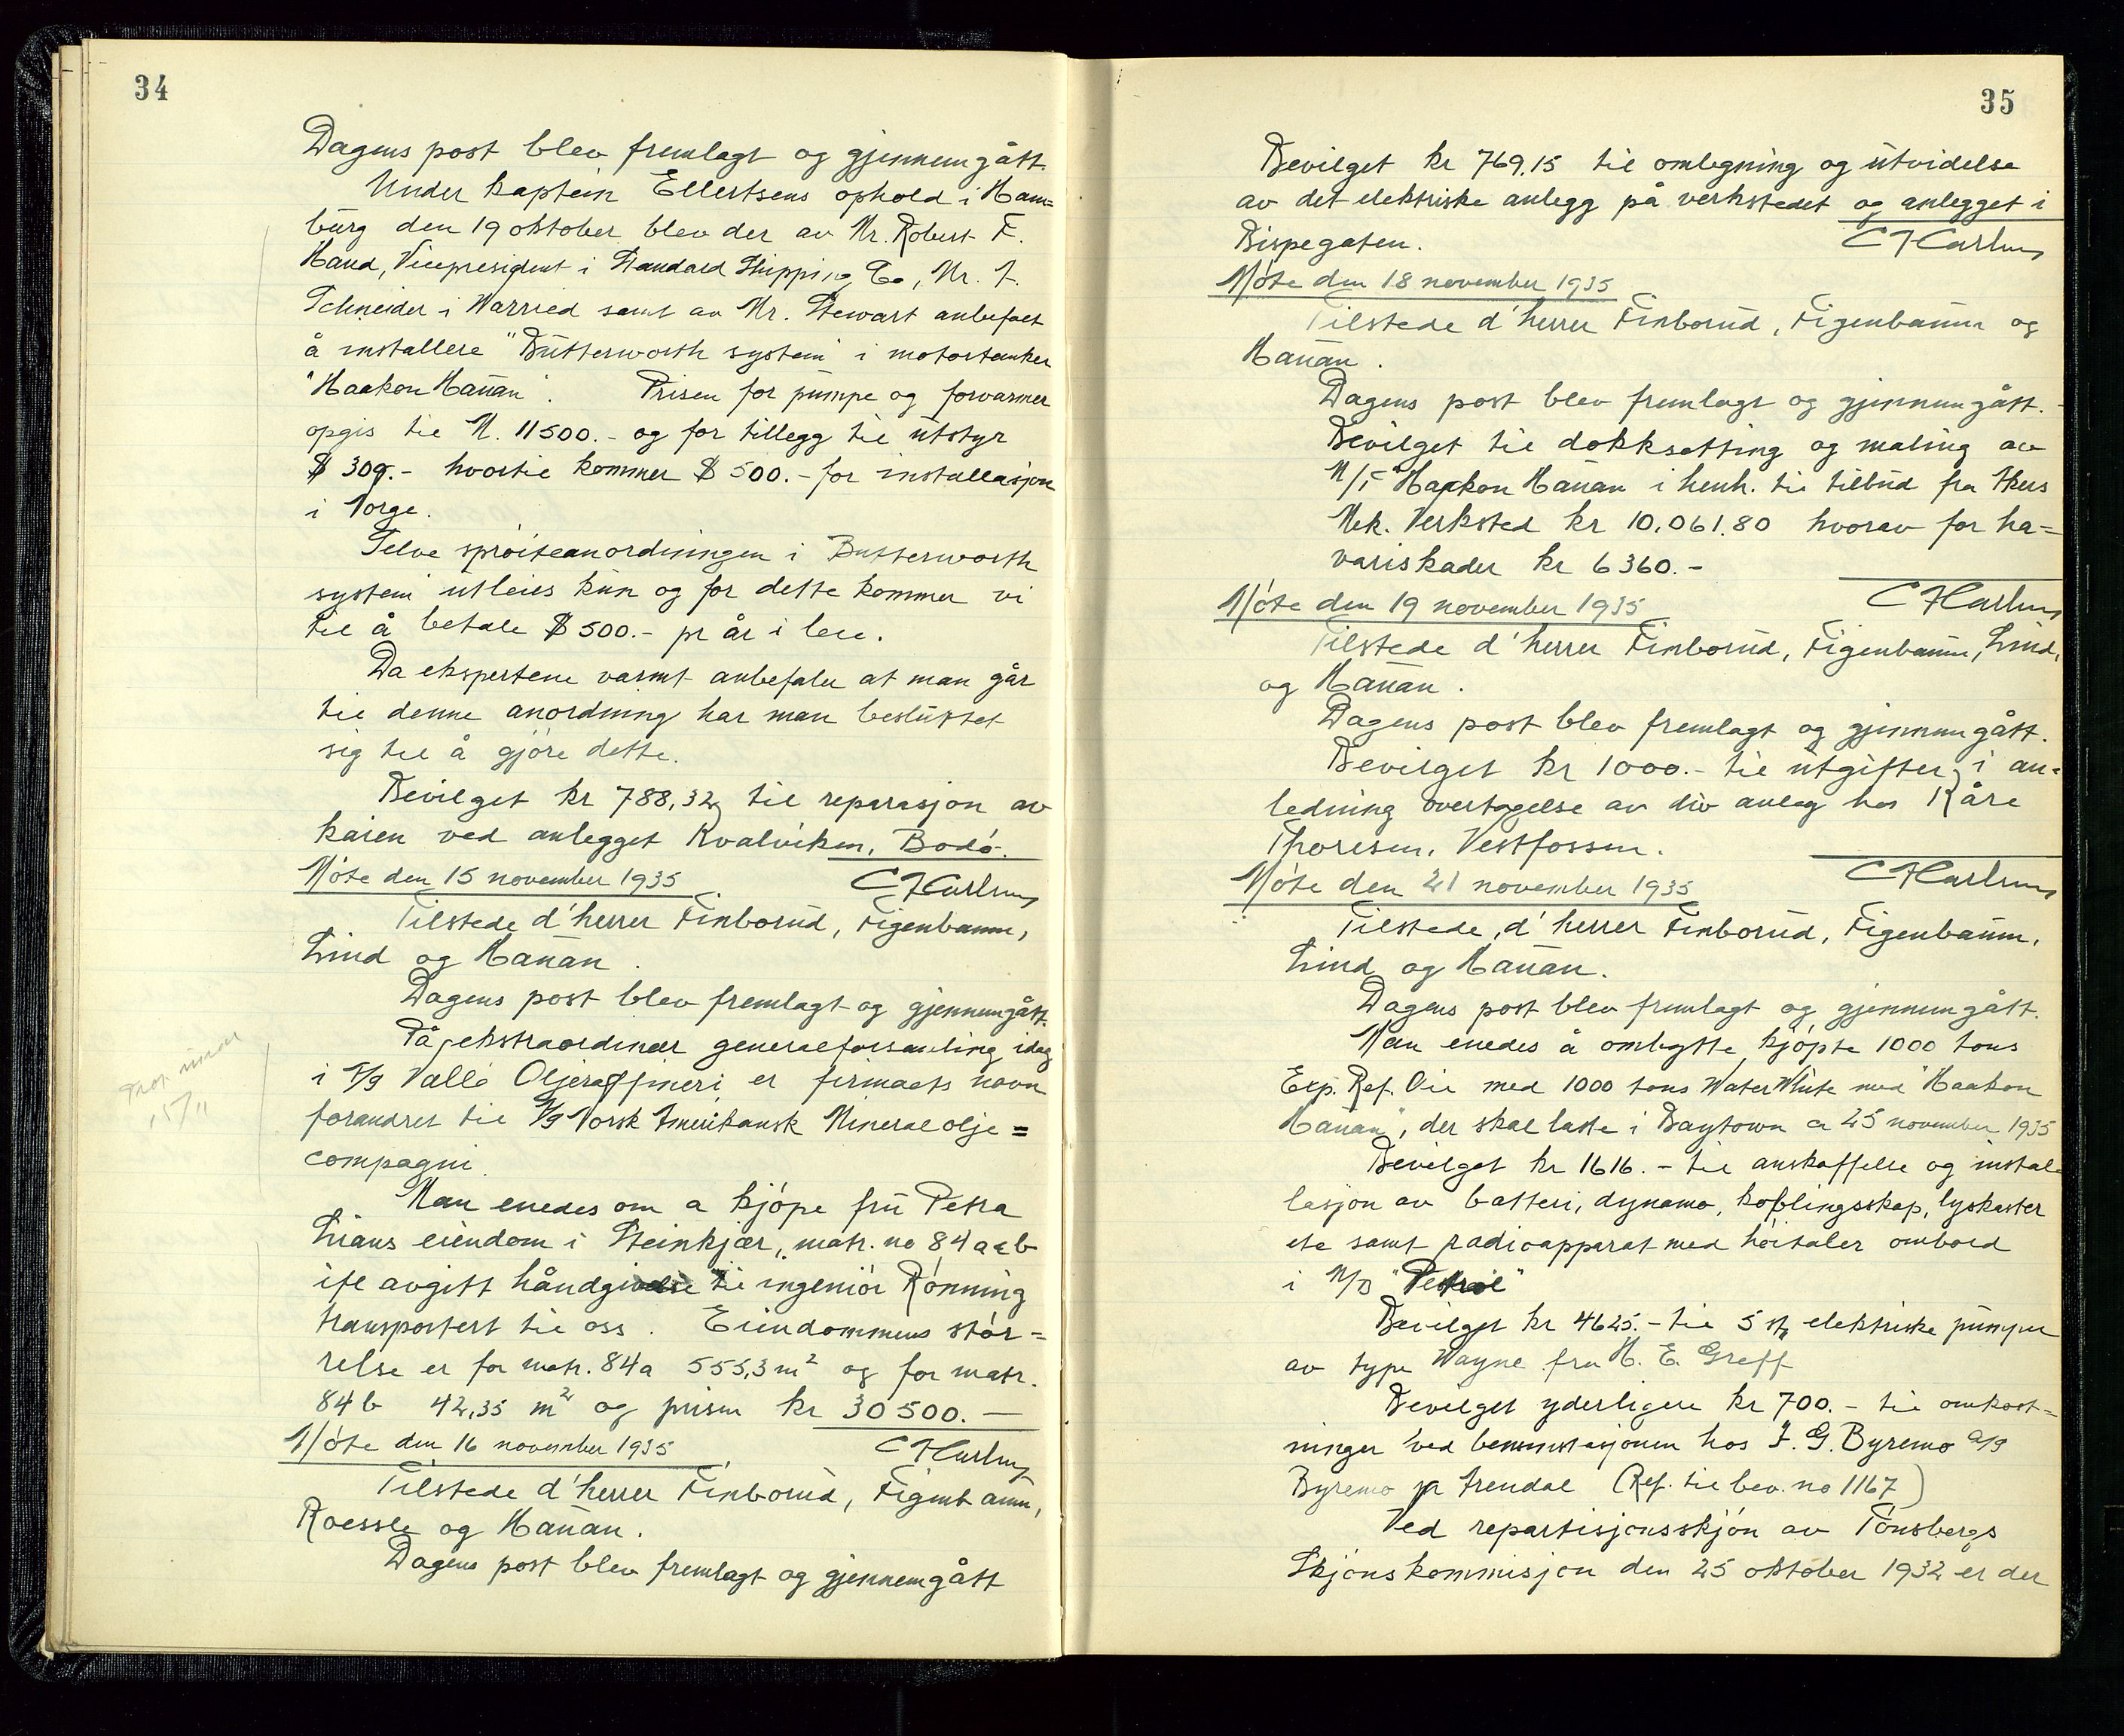 34
Dagens post blev fremlagt og gjennemgått.
Under kaptein Ellertsens ophold i Ham=
burg den 19 oktober blev der av Mr. Robert F.
Hand, Vicepresident i Standard Shipping Co, Mr. F.
Schneider i Warried samt av Mr. Stewart anbefalt
å installere "Butterworth system" i motortanker
"Haakon Hauan". Prisen for pumpe og forvarmer
opgis til M. 11500.- og for tillegg til utstyr
$ 309.- hvortil kommer $ 500.- for installasjon
i Norge.
Selve sprøiteanordningen i Butterworth
system utleies kun og for dette kommer vi
til å betale $ 500.- pr år i leie.
Da ekspertene varmt anbefaler at man går
til denne anordning har man besluttet
sig til å gjøre dette.
Bevilget kr 788,32 til reparasjon av
kaien ved anlegget Kvalviken, Bodø.
Møte den 15 november 1935
Tilstede d'herrer Finborud, Figenbaum,
Lind og Hauan.
Dagens post blev fremlagt og gjennemgått.
På ekstraordinær generalforsamling idag
i A/S Vallø Oljeraffineri er firmaets navn
forandret til A/S Norsk Amerikansk Mineralolje=
compagni.
15/11
Man enedes om a kjøpe fru Petra
Lians eiendom i Steinkjær, matr. no 84 a & b
ifl avgitt håndgivelse til ingeniør Rønning
transportert til oss. Eiendommens stør=
relse er for matr. 84a 555,3 m² og for matr.
84b 42,35 m² og prisen kr 30500.—
Møte den 16 november 1935
Tilstede d'herrer Finborud, Figenbaum,
Roessle og Hauan.
Dagens post blev fremlagt og gjennemgått
35
Bevilget kr 769,15 til omlegning og utvidelse
av det elektriske anlegg på verkstedet og anlegget i
Bispegaten.
Møte den 18 november 1935
Tilstede d'herrer Finborud, Figenbaum og
Hauan.
Dagens post blev fremlagt og gjennemgått.
Bevilget til dokksetting og maling av
M/T "Haakon Hauan i henh. til tilbud fra Akers
Mek. Verksted kr 10.061.80 hvorav for ha=
variskader kr 6360.-
Møte den 19 november 1935
Tilstede d'herrer Finborud, Figenbaum, Lind,
og Hauan.
Dagens post blev fremlagt og gjennemgått.
Bevilget kr 1000.- til utgifter i an=
ledning overtagelse av div anleg hos Kåre
Thoresen, Vestfossen.
Møte den 21 november 1935
Tilstede, d'herrer Finborud, Figenbaum,
Lind og Hauan.
Dagens post blev fremlagt og gjennemgått.
Man enedes å ombytte kjøpte 1000 tons
Exp. Ref. Oil med 1000 tons Water White med "Haakon
Hauan", der skal laste i Baytown ca 25 november 1935
Bevilget kr 1616.- til anskaffelse og instal
lasjon av batteri, dynamo, koblingsskap, lyskaster
etc samt radioapparat med høitaler ombord
i M/B "Petrol"
Bevilget kr 4625.- til 5 stk elektriske pumper
av type Wayne fra H. E. Greff
Bevilget yderligere kr 700.- til omkost=
ninger ved bensinstasjonen hos F. G. Byremo A/S
Byremo pr Arendal (Ref. til bev. no 1167)
Ved repartisjonsskjøn av Tønsbergs
Skjønskommisjon den 25 oktober 1932 er der